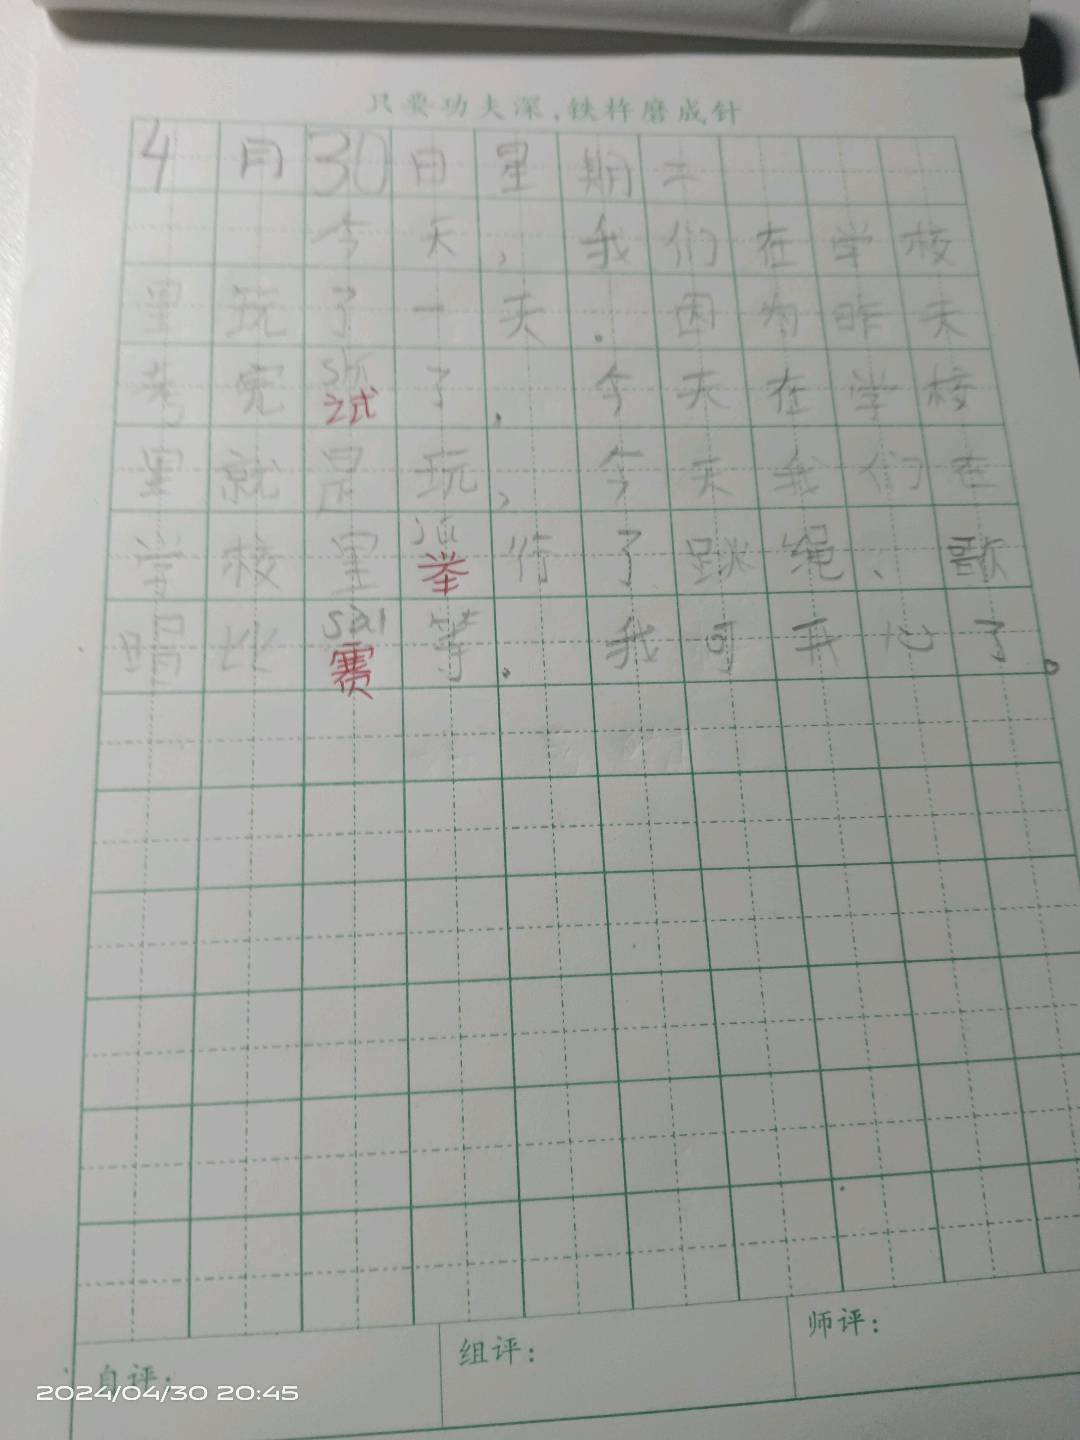 只要功夫深,铁杵磨成针
4月30日星期二
今天,我们在学校
里玩了一天.因为昨天
考完shi试了,今天在学校
里就是玩,今天我们在
学校里ju举行了跳绳、歌
唱比sai赛等.我可开心了。
自评:
组评:
师评:
2024/04/30 20:45